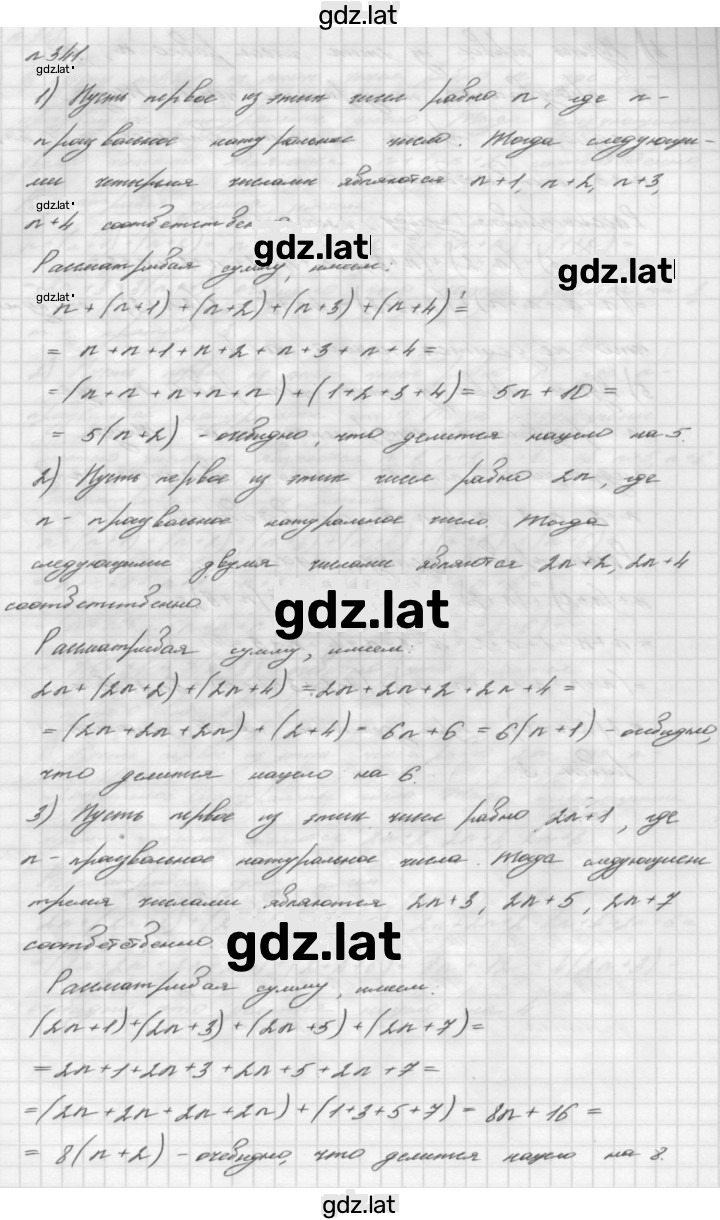 gdz.lat
n 341.
gdz.lat
1) Пусть первое из этих чисел равно n, где n -
произвольное натуральное число. Тогда следующи-
ми четырмя числами являются n+1, n+2, n+3,
gdz.lat
n+4 соответствен
gdz.lat
Рассматривая сумму, имеем:
gdz.lat
gdz.lat
n + (n+1) + (n+2) + (n+3) + (n+4) =
= n + n + 1 + n + 2 + n + 3 + n + 4 =
= (n + n + n + n + n) + (1+2+3+4) = 5n + 10 =
= 5(n+2) - очевидно, что делится нацело на 5.
2) Пусть первое из этих чисел равно 2n, где
n - произвольное натуральное число. Тогда
следующими двумя числами являются 2n+2, 2n+4
соответственно.
gdz.lat
Рассматривая сумму, имеем:
2n + (2n+2) + (2n+4) = 2n + 2n + 2 + 2n + 4 =
= (2n + 2n + 2n) + (2+4) = 6n + 6 = 6(n+1) - очевидно,
что делится нацело на 6.
3) Пусть первое из этих чисел равно 2n+1, где
n - произвольное натуральное числа. Тогда следующими
тремя числами являются 2n+3, 2n+5, 2n+7
соответственно.
gdz.lat
Рассматривая сумму, имеем:
(2n+1) + (2n+3) + (2n+5) + (2n+7) =
= 2n + 1 + 2n + 3 + 2n + 5 + 2n + 7 =
= (2n + 2n + 2n + 2n) + (1+3+5+7) = 8n + 16 =
= 8(n+2) - очевидно, что делится нацело на 8.
gdz.lat